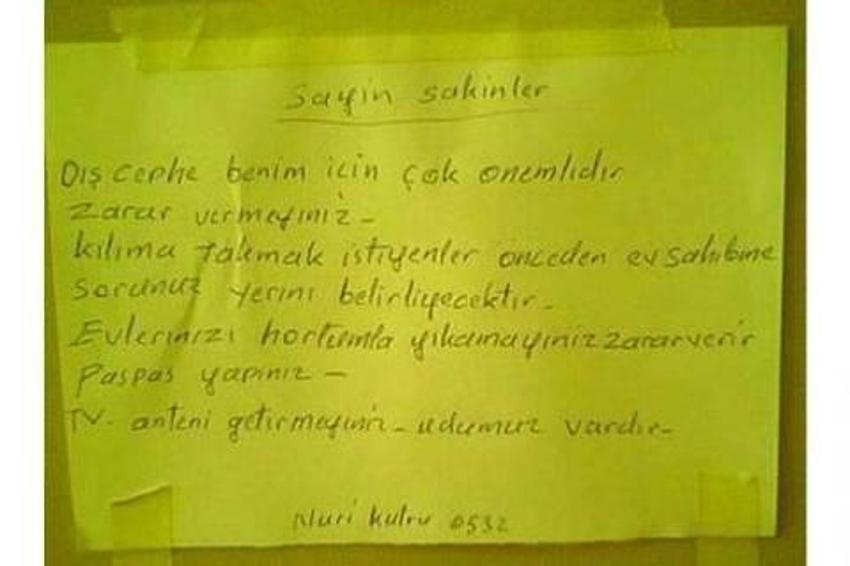 Sayin sakinler
Dış cephe benim icin çok onemlidir
Zarar vermeyiniz -
kılıma takmak istiyenler onceden ev sahibine
sorunuz yerini belirliyecektir -
Evlerinizi hortumla yıkamayınız zarar verir
Paspas yapınız -
TV. anteni getirmeyiniz - udumuz vardır -
Nuri kutru 0532